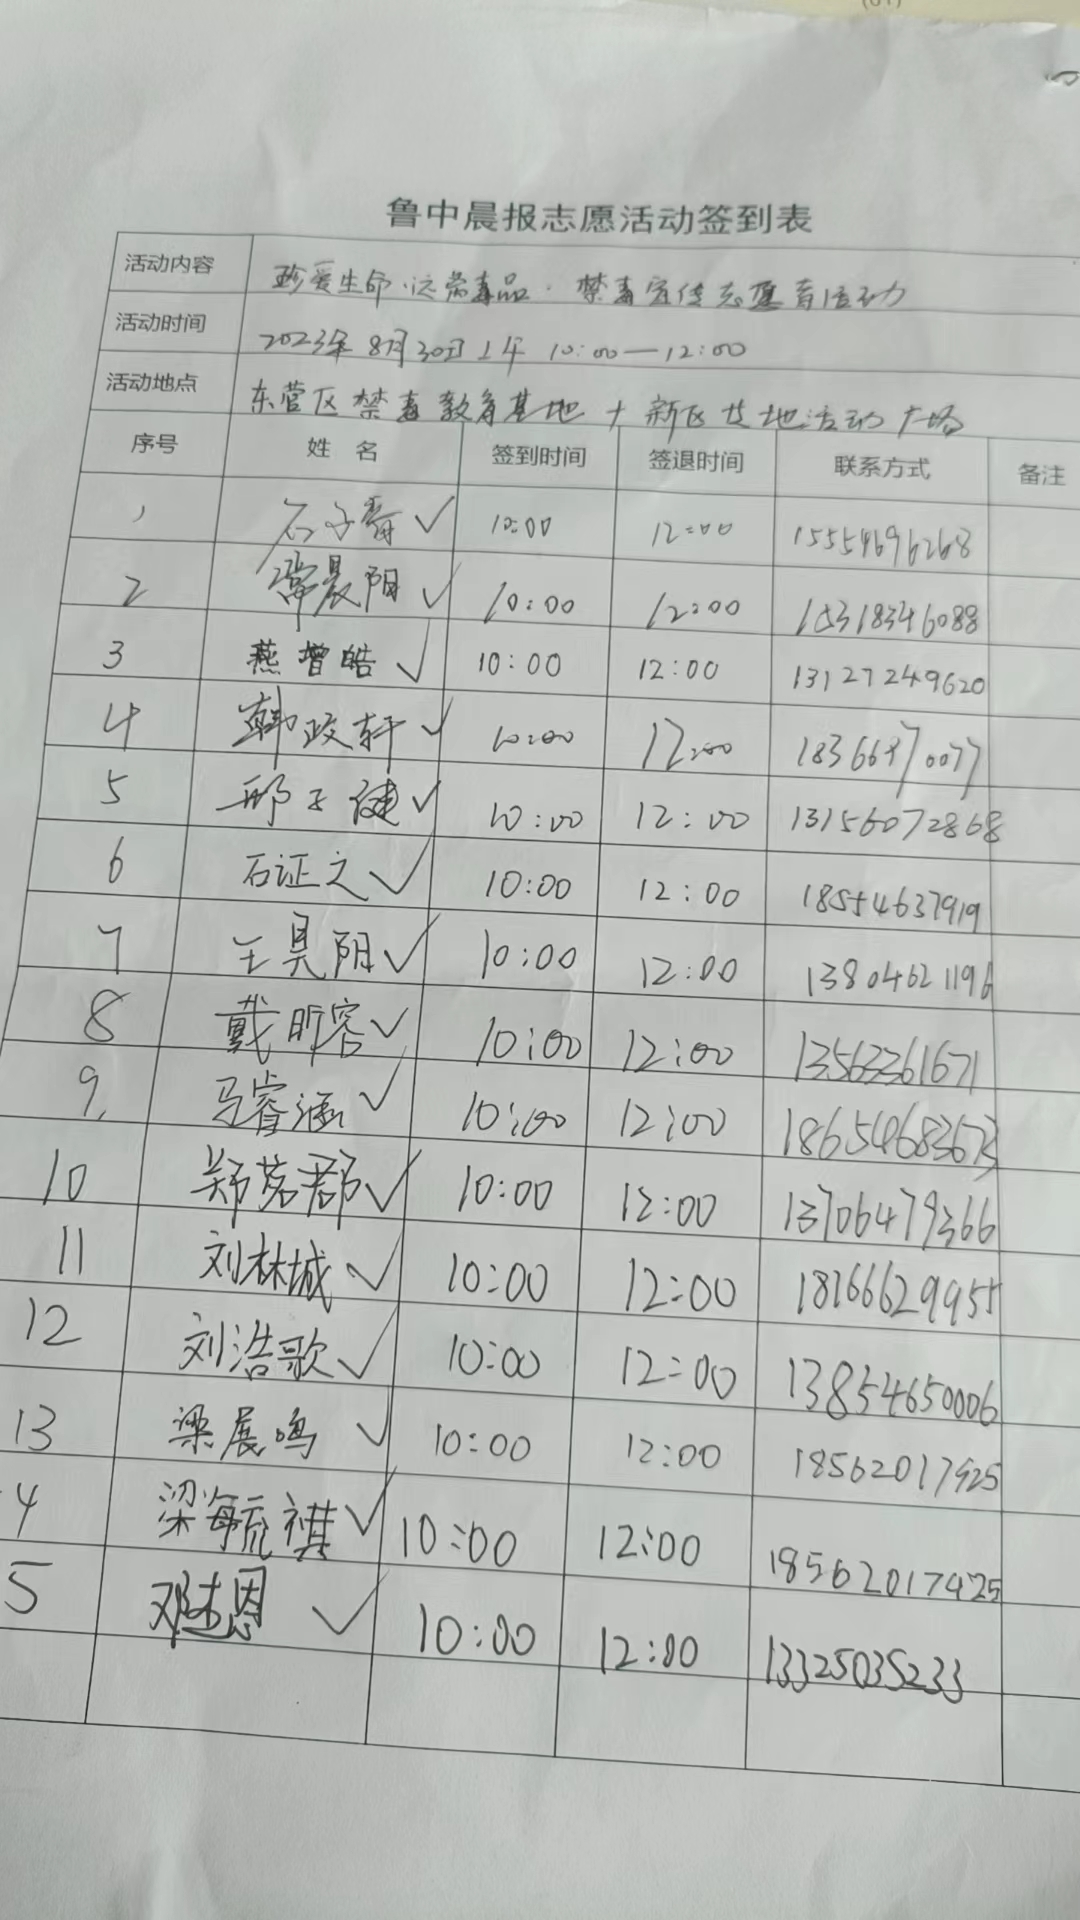 鲁中晨报志愿活动签到表
活动内容 珍爱生命·远离毒品·禁毒宣传志愿者活动
活动时间 2023年8月30日上午 10:00—12:00
活动地点 东营区禁毒教育基地 + 新区 地活动广场
序号 姓名 签到时间 签退时间 联系方式 备注
1 石子 ✓ 10:00 12:00 15554696268
2 晨阳 ✓ 10:00 12:00 18318346088
3 燕增皓 ✓ 10:00 12:00 13127249620
4 韩政轩 ✓ 10:00 12:00
5 邢子健 ✓ 10:00 12:00 13156072868
6 石证之 ✓ 10:00 12:00 18554637919
7 王昊阳 ✓ 10:00 12:00 13804621196
8 戴昕容 ✓ 10:00 12:00 13563361671
9 马睿涵 ✓ 10:00 12:00 18654683673
10 郑茗郡 ✓ 10:00 12:00 13706479366
11 刘林城 ✓ 10:00 12:00 18166629955
12 刘浩歌 ✓ 10:00 12:00 13854650006
13 梁展鸣 ✓ 10:00 12:00 18562017425
4 梁毓祺 ✓ 10:00 12:00 18562017425
5 邓恩 ✓ 10:00 12:00 13325035233